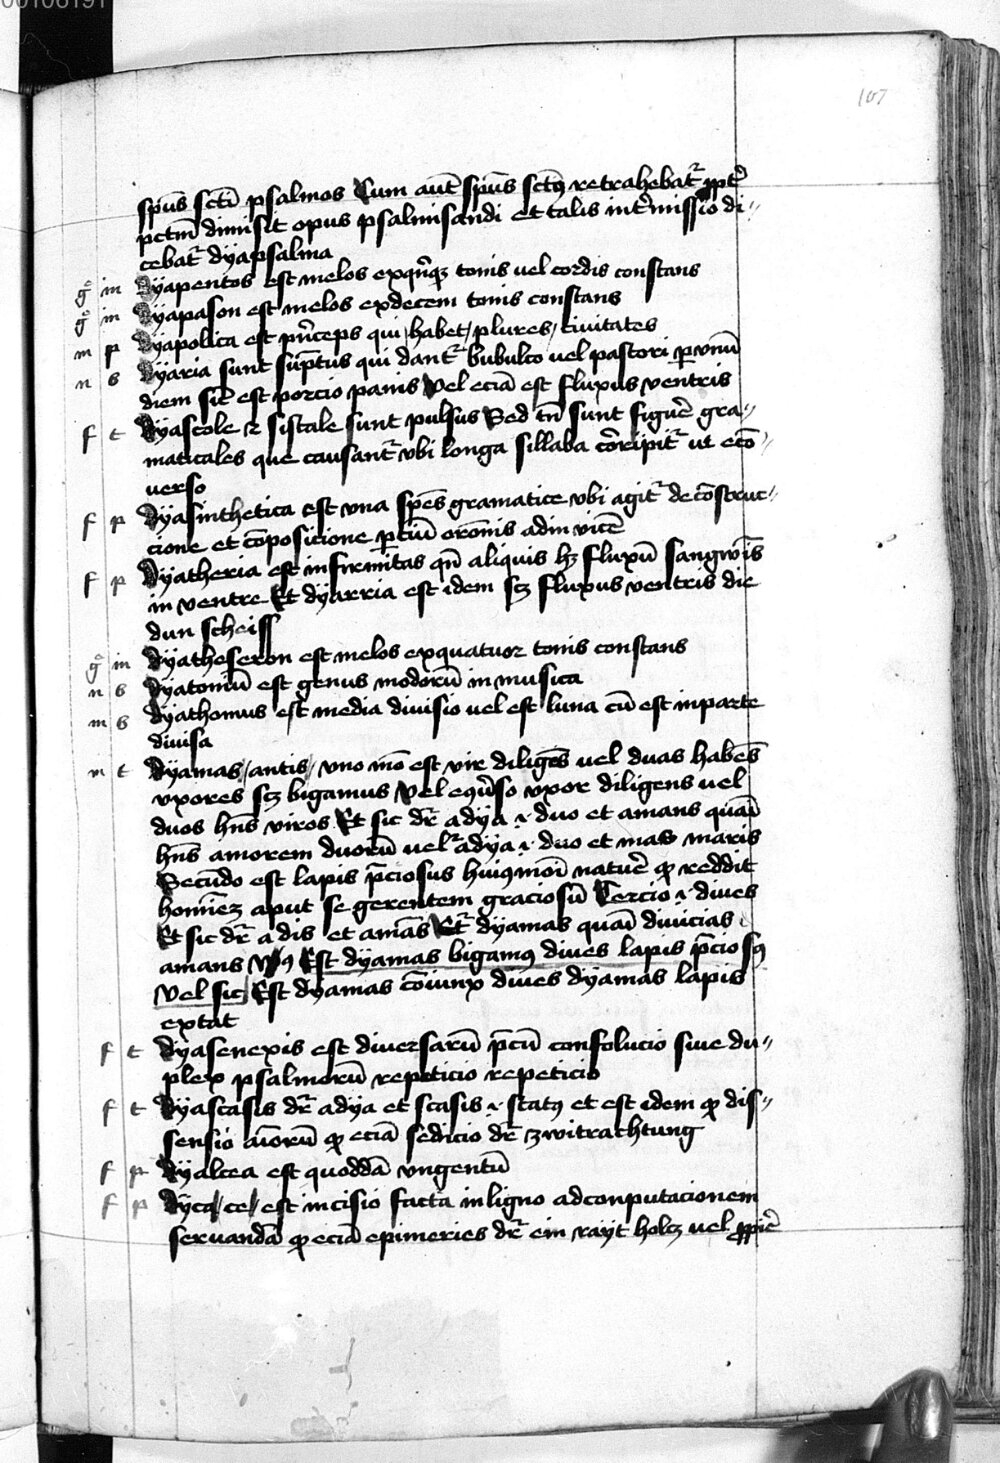 107
spūs sctī psalmos Cum aut̄ spūs sctꝯ retrahebat᷑ ꝓpt̄
pctm̄ dimisit opus psalmisandi et talis int̄missio di〃
cebat᷑ dyapsalma
g̊ in Dyapentos est melos exqn̄qꝫ tonis uel cordis constans
g̊ in Dyapason est melos exdecem tonis constans
m p Dyapolica est pn̄ceps qui habet plures ciuitates
n s Dyaria sunt sūptus qui dant᷑ bubulco uel pastori ꝑ vnū
diem sic̄ est porcio panis Vel eciā est fluxus ventris
f t Dyascole ⁊ sistale sunt pulsus Sed tn̄ sunt figur̄e gra〃
maticales que causant᷑ vbi longa sillaba cōripit᷑ ut ecō〃
uerso
f p Dyasinthetica est vna spēs gramatice vbi agit᷑ de cōstruc〃
cione et cōposicione ꝑciū orōnis adinvicē
f p Dyatheria est infirmitas qn̄ aliquis hꝫ fluxū sangwīs
in ventre Et dyarria est idem sꝫ fluxus ventris die
dun scheiss
g̊ in Dyatheseron est melos exquatuor tonis constans
n s Dyatoniū est genus modorū in musica
m s Dyathomus est media diuisio uel est luna cū est inparte
diuisa
m t Dyamas antis vno mō est vir diligēs uel duas habēs
vxores sꝫ bigamus Vel eqūso vxor diligens uel
duos hn̄s viros Et sic dr̄ a dya .i. duo et amans quāi
hn̄s amorem duorū uel᷑ a dya .i. duo et mas maris
Secūdo est lapis p̄ciosus huiꝯmōi natur̄e ꝙ reddit
homīeꝫ aput se gerentem graciosū Tercio .i. diues
Et sic dr̄ a dis et amās Et᷑ dyamas quāi diuicias
amans Vꝯ Est dyamas bigamꝯ diues lapis p̄ciosꝯ
Vel sic Est dyamas cōiunx diues dyamas lapis
extat
f t Dyasenexis est diuersarū p̄cū consolucio siue du〃
plex psalmorū repeticio repeticio
f t Dyastasis dr̄ a dya et stasis .i. statꝯ et est idem ꝙ dis〃
sensio aīorū ꝙ eciā sedicio dr̄ zwitrachtung
f p Dyaltea est quoddā vngentū
f p Dyca ce est incisio facta in ligno adconputacionem
seruandā ꝙ eciā epimeries dr̄ em rayt holcz uel